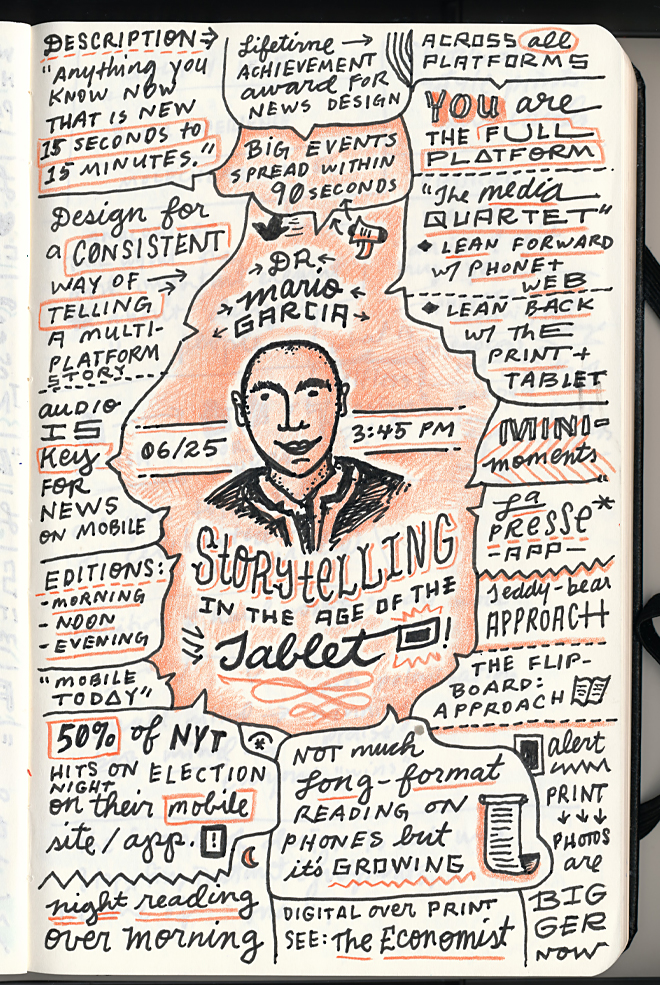 DESCRIPTION→
"Anything you
KNOW NOW
THAT IS NEW
15 SECONDS to
15 MINUTES."
Lifetime →
ACHIEVEMENT
award FOR
NEWS DESIGN
BIG EVENTS
SPREAD WITHIN
90 SECONDS
ACROSS all
PLATFORMS
YOU are
THE FULL
PLATFORM
"The media
QUARTET"
◆ LEAN FORWARD
w/ PHONE+
WEB
◆ LEAN BACK
w/ ThE
PRINT +
TABLET
Design for
a CONSISTENT
WAY OF →
TELLING
A MULTI-
PLATFORM
STORY
DR.
mario
GARCIA
06/25
3:45 PM
STORYTELLING
IN THE AGE OF THE
Tablet !
audio
IS
Key
FOR
NEWS
ON MOBILE
EDITIONS:
-MORNING
-NOON
-EVENING
"MOBILE
TODAY"
MINI-
moments
La
PRESSE*
-APP-
Teddy-bear
APPROACH
THE FLIP-
BOARD:
APPROACH
50% of NYT
HITS ON ELECTION
NIGHT
on their mobile
site/app.
night reading
over morning
NOT much
Long-format
READING ON
PHONES but
it's GROWING
DIGITAL over PRINT
SEE: The Economist
alert
PRINT
↓↓↓
PHOTOS
are
BIG
GER
NOW